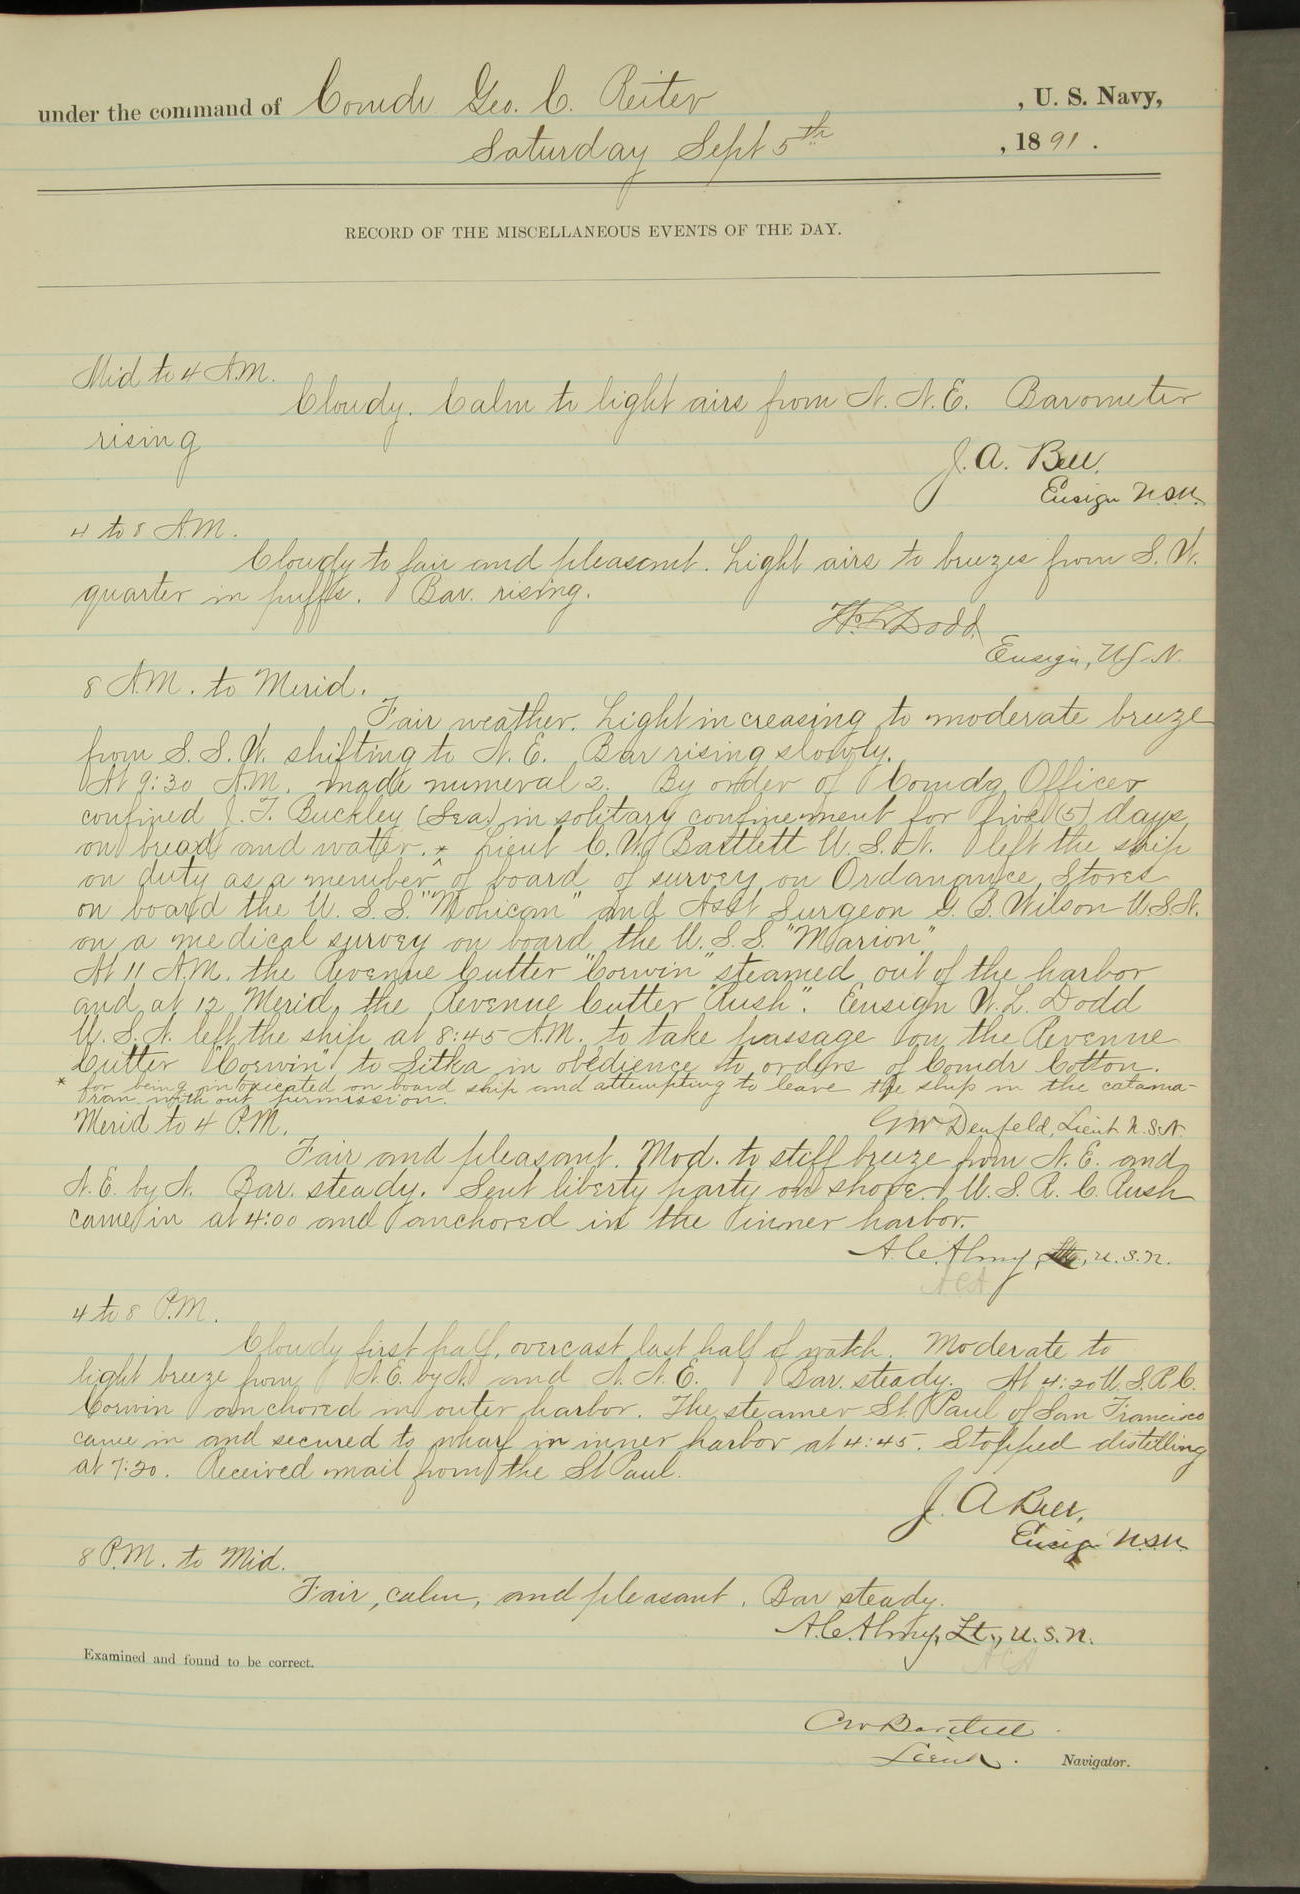 under the command of Comdr Geo. C. Reiter , U. S. Navy,
Saturday Sept 5th , 1891 .
RECORD OF THE MISCELLANEOUS EVENTS OF THE DAY.
Mid to 4 A.M.
Cloudy. Calm to light airs from N. N. E. Barometer
rising
J. A. Bell,
Ensign U.S.N.
4 to 8 A.M.
Cloudy to fair and pleasant. Light airs to breezes from S. W.
quarter in puffs. Bar. rising.
W. L. Dodd,
Ensign, U.S.N.
8 A.M. to Merid.
Fair weather. Light increasing to moderate breeze
from S. S. W. shifting to N. E. Bar rising slowly.
At 9:30 A.M. made numeral 2. By order of Comdg Officer
confined J. T. Buckley (Sea.) in solitary confinement for five (5) days
on bread and water. * Lieut C. W. Bartlett U. S. N. left the ship
on duty as a member of board of survey on Ordanance Stores
on board the U. S. S. "Mohican" and Asst Surgeon G. B. Wilson U.S.N.
on a medical survey on board the U. S. S. "Marion"
At 11 A.M. the Revenue Cutter "Corwin" steamed out of the harbor
and at 12 Merid, the Revenue Cutter "Rush". Ensign W. L. Dodd
U. S. N. left the ship at 8:45 A.M. to take passage on the Revenue
Cutter "Corwin" to Sitka in obedience to orders of Comdr Cotton.
* for being intoxicated on board ship and attempting to leave the ship in the catama-
ran with out permission.
G W Denfeld, Lieut U.S.N.
Merid to 4 P.M.
Fair and pleasant. Mod. to stiff breeze from N. E. and
N. E. by N. Bar. steady. Sent liberty party on shore. U. S. R. C. Rush
came in at 4:00 and anchored in the inner harbor.
A. C. Almy, U.S.N.
ACA
4 to 8 P.M.
Cloudy first half, overcast last half of watch. Moderate to
light breeze from N. E. by N. and N. N. E. Bar. steady. At 4:20 U. S. R. C.
Corwin anchored in outer harbor. The steamer St Paul of San Francisco
came in and secured to wharf in inner harbor at 4:45. Stopped distilling
at 7:20. Received mail from the St Paul.
J. A Bell,
Ensign U.S.N.
8 P.M. to Mid.
Fair, calm, and pleasant. Bar steady.
A. C. Almy, Lt., U.S.N.
ACA
Examined and found to be correct.
CW Bartlett
Lieut. Navigator.